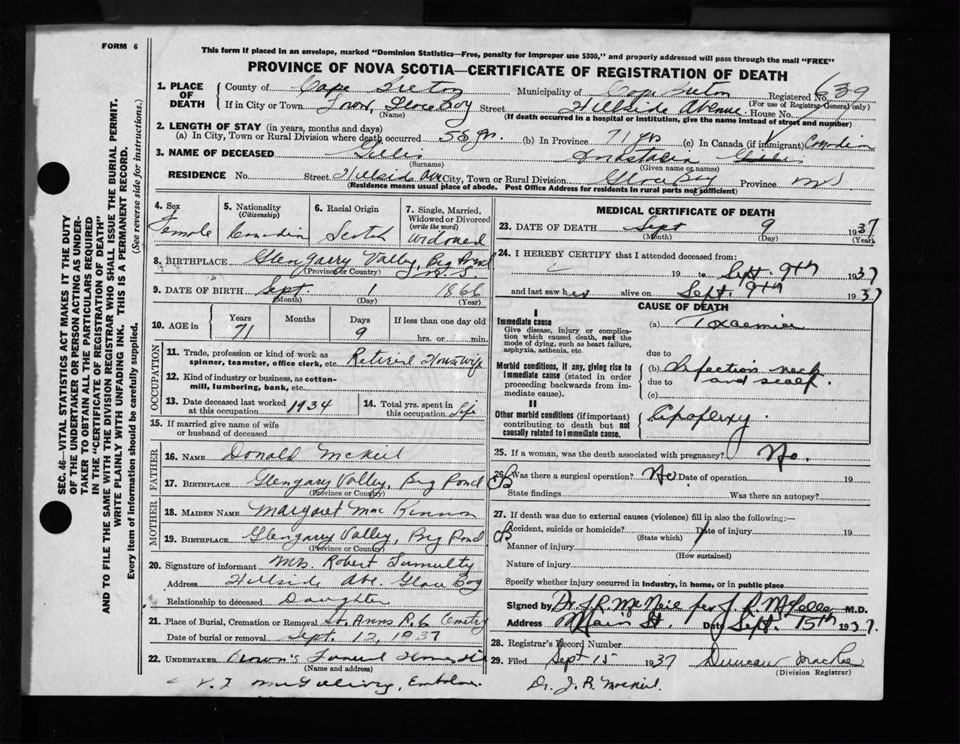 FORM 6
This form if placed in an envelope, marked "Dominion Statistics—Free, penalty for improper use $300," and properly addressed will pass through the mail "FREE"
PROVINCE OF NOVA SCOTIA—CERTIFICATE OF REGISTRATION OF DEATH
1. PLACE OF DEATH
County of Cape Breton Municipality of Cape Breton Registered No. 639
(For use of Registrar-General only)
If in City or Town Town, Glace Bay Street Hillside Avenue House No.
(Name) (If death occurred in a hospital or institution, give the name instead of street and number)
2. LENGTH OF STAY (in years, months and days)
(a) In City, Town or Rural Division where death occurred 58 yrs. (b) In Province 71 yrs (c) In Canada (if immigrant) Canadian
3. NAME OF DECEASED Gillis Anastasia
(Surname) (Given name or names)
RESIDENCE No. Street Hillside Ave City, Town or Rural Division Glace Bay Province N.S.
(Residence means usual place of abode. Post Office Address for residents in rural parts not sufficient)
4. Sex Female
5. Nationality (Citizenship) Canadian
6. Racial Origin Scotch
7. Single, Married, Widowed or Divorced (write the word) Widowed
8. BIRTHPLACE Glengarry Valley, Big Pond N.S.
(Province or Country)
9. DATE OF BIRTH Sept. 1 1866
(Month) (Day) (Year)
10. AGE in Years Months Days If less than one day
71 9 hrs. or min.
OCCUPATION
11. Trade, profession or kind of work as spinner, teamster, office clerk, etc. Retired Housewife
12. Kind of industry or business, as cotton-mill, lumbering, bank, etc.
13. Date deceased last worked at this occupation 1934
14. Total yrs. spent in this occupation Life
15. If married give name of wife or husband of deceased
FATHER
16. NAME Donald McNeil
17. BIRTHPLACE Glengary Valley, Big Pond
(Province or Country)
MOTHER
18. MAIDEN NAME Margaret Mac Kinnon
19. BIRTHPLACE Glengarry Valley, Big Pond
(Province or Country)
20. Signature of informant Mrs. Robert
Address Hillside Ave. Glace Bay
Relationship to deceased Daughter
21. Place of Burial, Cremation or Removal St. Anns R.C. Cemetry
Date of burial or removal Sept. 12, 1937
22. UNDERTAKER Brown's Funeral Home
(Name and address)
Embalmer.
MEDICAL CERTIFICATE OF DEATH
23. DATE OF DEATH Sept 9 1937
(Month) (Day) (Year)
24. I HEREBY CERTIFY that I attended deceased from:
19 to Sept. 9th 1937
and last saw her alive on Sept. 9th 1937
CAUSE OF DEATH
I
Immediate cause
Give disease, injury or complication which caused death, not the mode of dying, such as heart failure, asphyxia, asthenia, etc.
(a) Toxaemia
due to
Morbid conditions, if any, giving rise to immediate cause (stated in order proceeding backwards from immediate cause).
(b) Infection neck and scalp.
due to
(c)
II
Other morbid conditions (if important) contributing to death but not causally related to immediate cause.
Apoplexy
25. If a woman, was the death associated with pregnancy? No.
26. Was there a surgical operation? No. Date of operation 19
State findings Was there an autopsy?
27. If death was due to external causes (violence) fill in also the following:—
Accident, suicide or homicide? Date of injury 19
(State which)
Manner of injury
(How sustained)
Nature of injury
Specify whether injury occurred in industry, in home, or in public place
Signed by Dr. J.R. McNeil per M.D.
Address Main St. Date Sept. 15th 1937.
28. Registrar's Record Number
29. Filed Sept 15 1937 Duncan
(Division Registrar)
Dr. J. R. McNeil.
SEC. 46—VITAL STATISTICS ACT MAKES IT THE DUTY
OF THE UNDERTAKER OR PERSON ACTING AS UNDER-
TAKER TO OBTAIN ALL THE PARTICULARS REQUIRED
IN THE "CERTIFICATE OF REGISTRATION OF DEATH"
AND TO FILE THE SAME WITH THE DIVISION REGISTRAR WHO SHALL ISSUE THE BURIAL PERMIT.
WRITE PLAINLY WITH UNFADING INK. THIS IS A PERMANENT RECORD.
Every item of information should be carefully supplied. (See reverse side for instructions.)